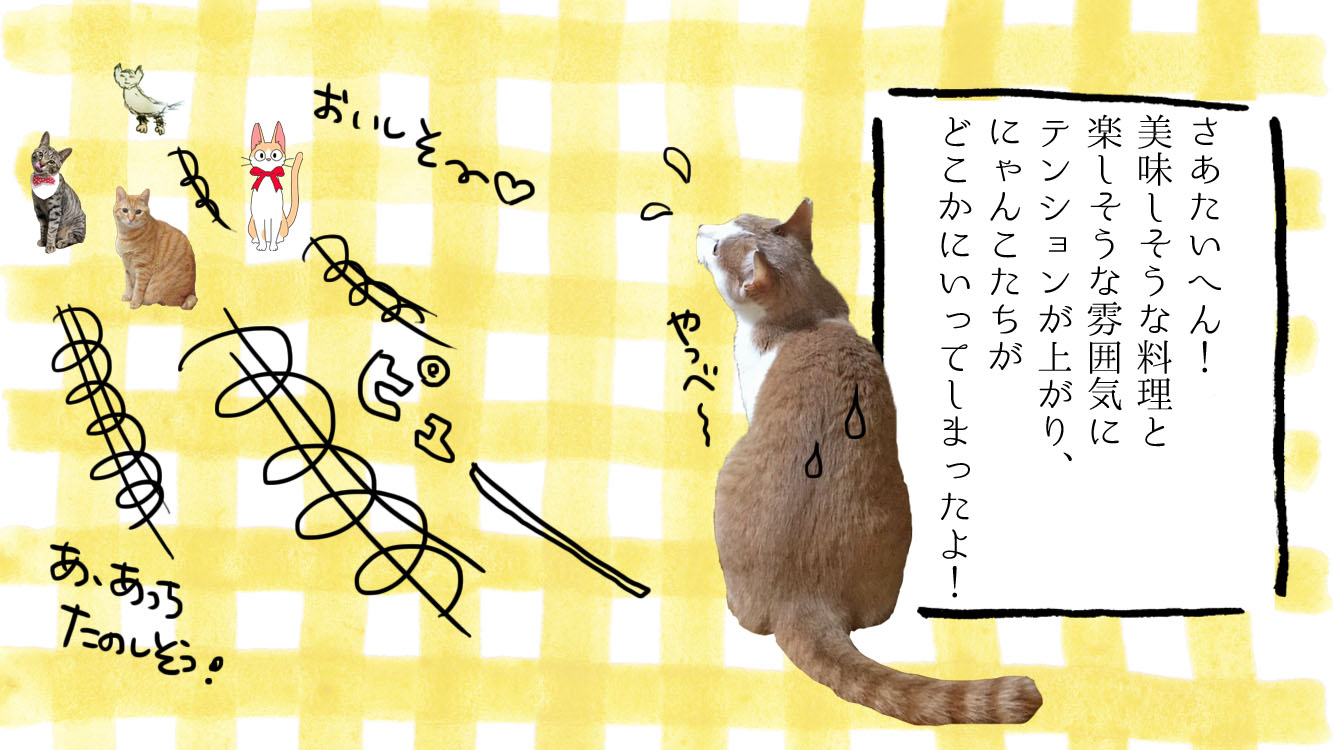 さあたいへん！
美味しそうな料理と
楽しそうな雰囲気に
テンションが上がり、
にゃんこたちが
どこかにいってしまったよ！
やっべ〜
おいしそ〜♡
ピュー
あ、あっち
たのしそう！